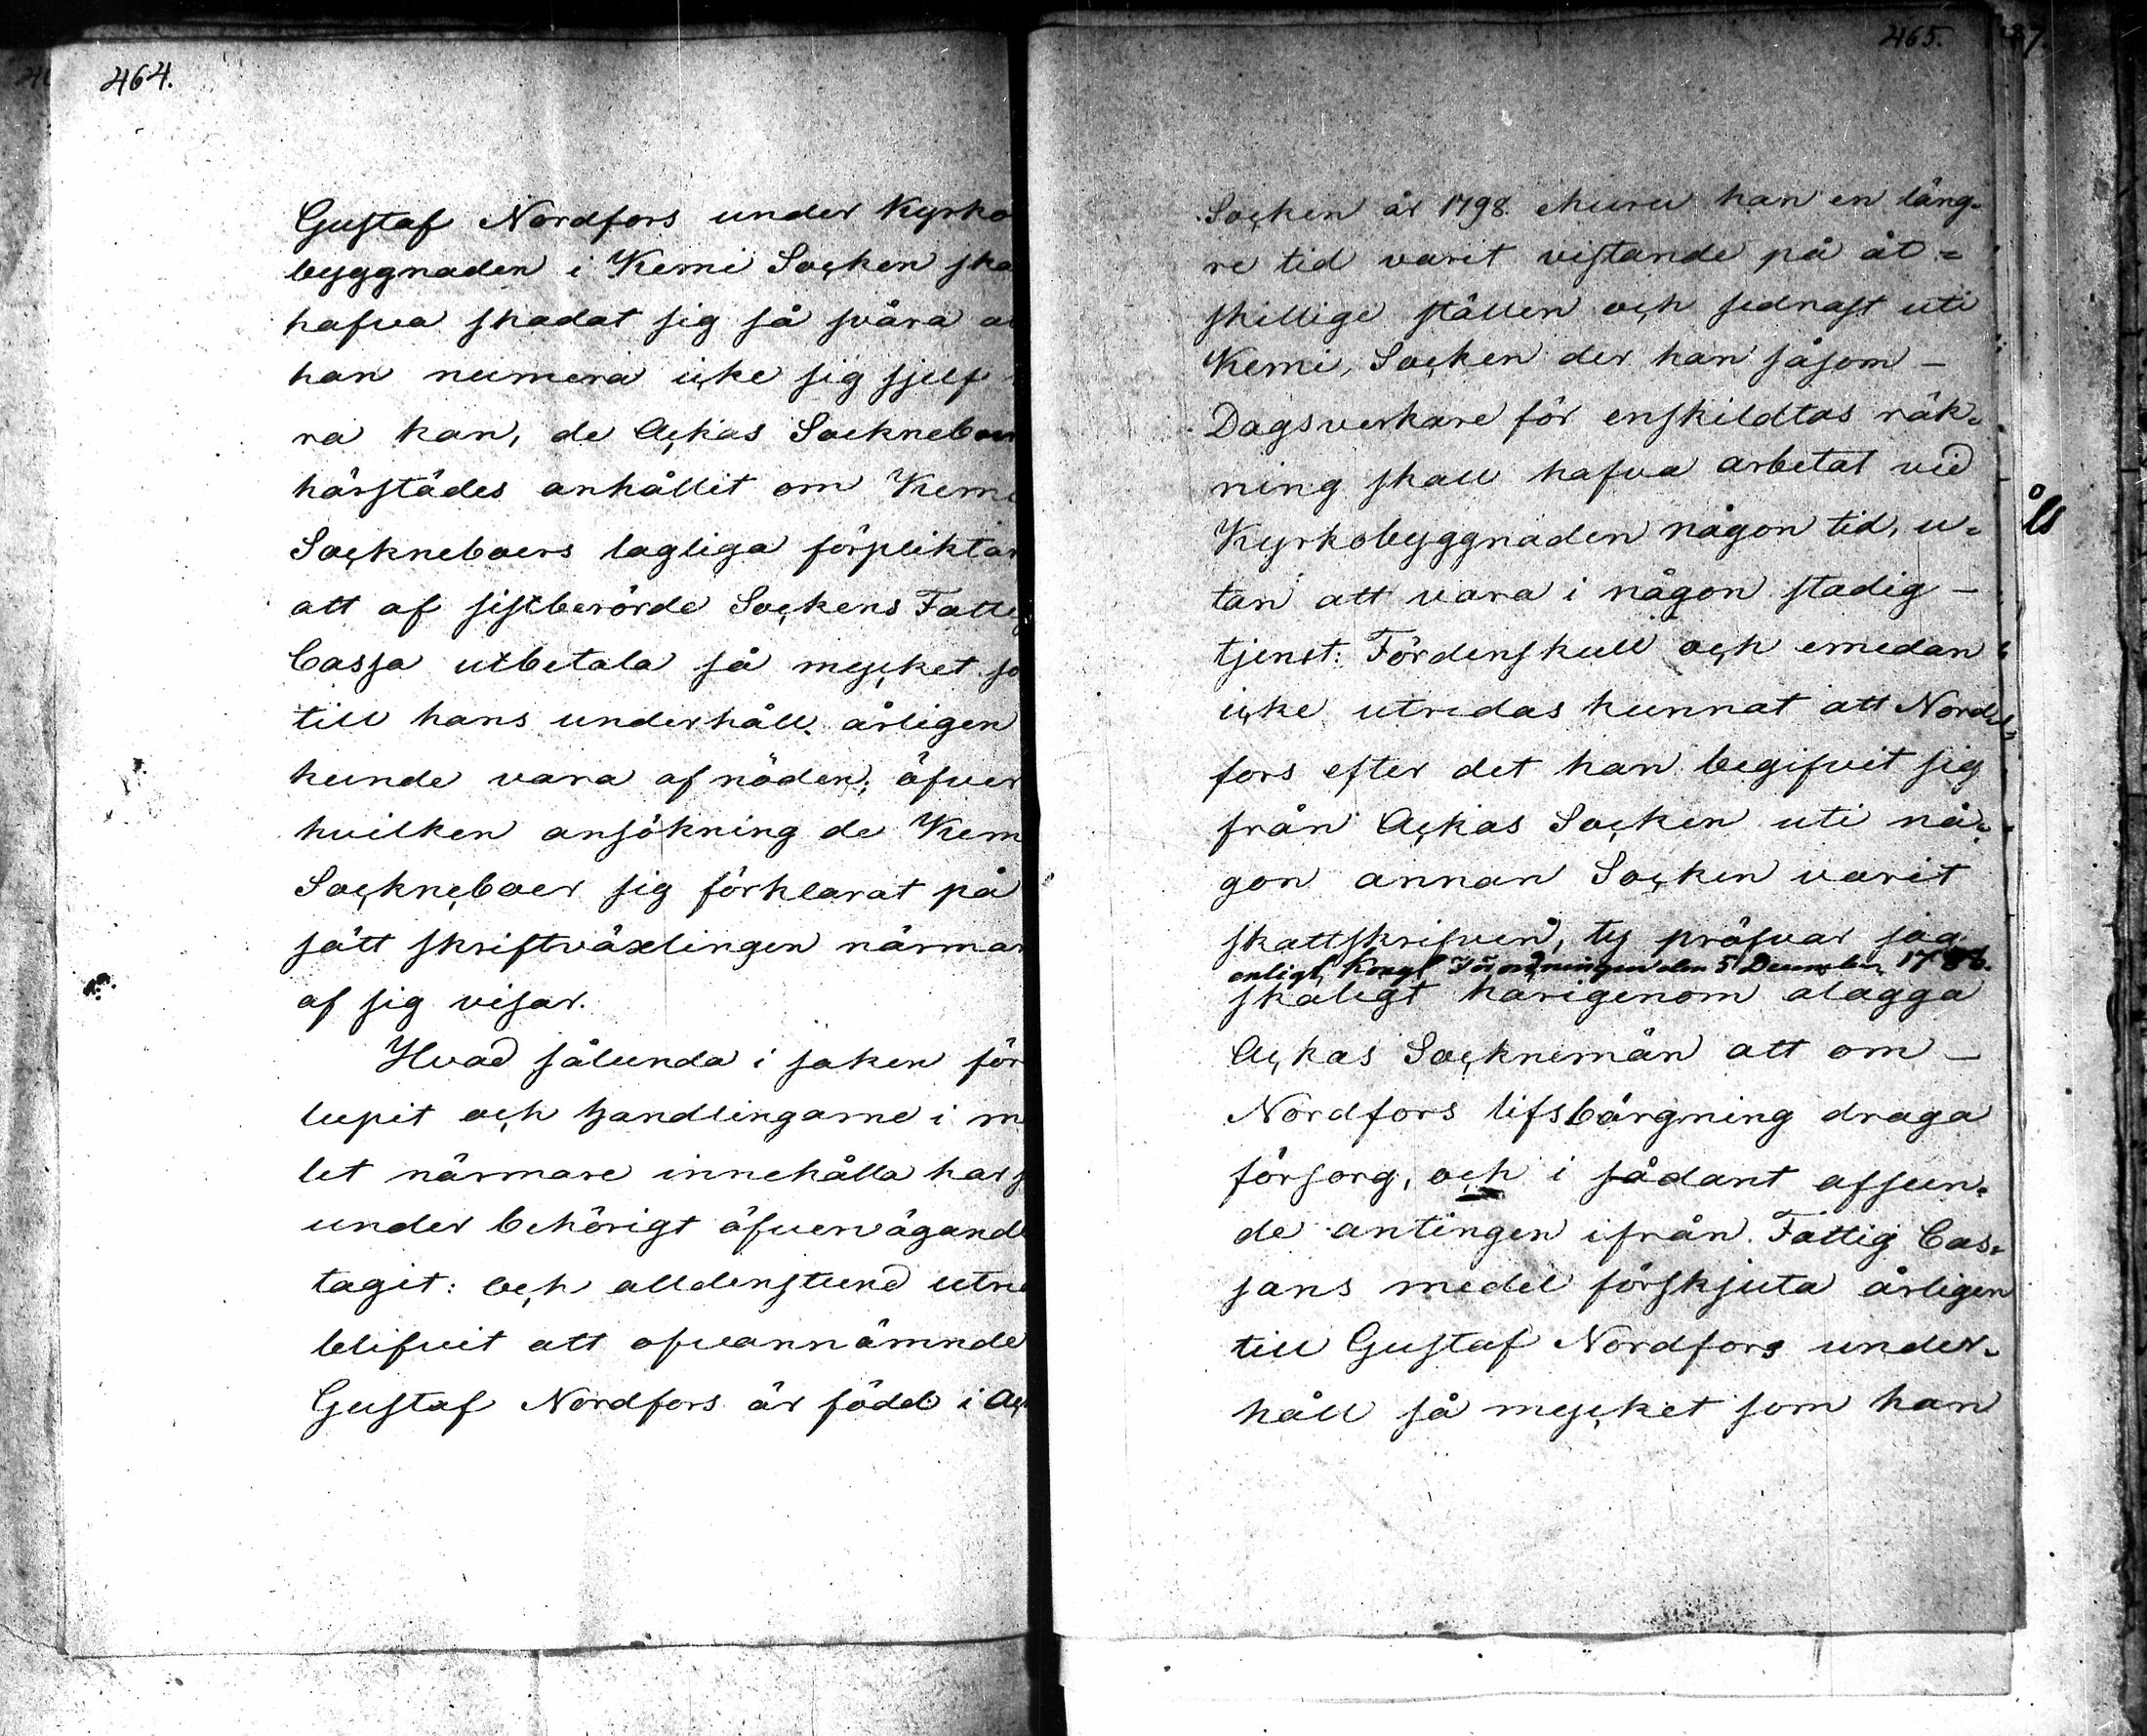 464.
Gustaf Nordfors under Kyrko
byggnaden i Kemi Socken ska
hafva skadat sig så svåra a
han numera icke sig sjelf
ra kan, de Ackas Socknebver
härstädes anhållit om Kemi
Sockneboers lagliga förpliktar
att af sistberörde Sockens Fatti
Cassa utbetala så mycket so
till hans underhåll årligen
kunde vara af nöden; öfver
hvilken ansökning de Kem
Sockneboer sig förklarat på
sätt skriftväxlingen närmar
af sig visar.
Hvad sålunda i saken för
lupit och handlingarne i m
let närmare innehålla har j
under behörigt öfvervägande
tagit: och alldenstund utre
blifvit att ofvannämnde
Gustaf Nordfors är född i Ac
465.
Socken år 1798. churu han en läng-
re tid varit vistande på åt=
skillige ställen och sednast uti
Kemi, Socken der han såsom –
Dagsverkare för enskildtas räk-
ning skall hafva arbetat vid
Kyrkobyggnaden någon tid, u-
tan att vara i någon stadig –
tjenst: Fördenskull och emedan
icke utredas kunnat att Nord-
fors efter det han begifvit sig
från Ackas Socken uti nå-
gon annan Socken varit
skattskrifven, ty pröfvar jag
enligt Kongl Förordningen den 5 December 1788.
skäligt härigenom alägga
Ackas Socknemän att om –
Nordfors lifsbärgning draga
försorg, och i sådant afseen-
de antingen ifrån Fattig Cas-
sans medel förskjuta årligen
till Gustaf Nordfors under-
håll så mycket som han